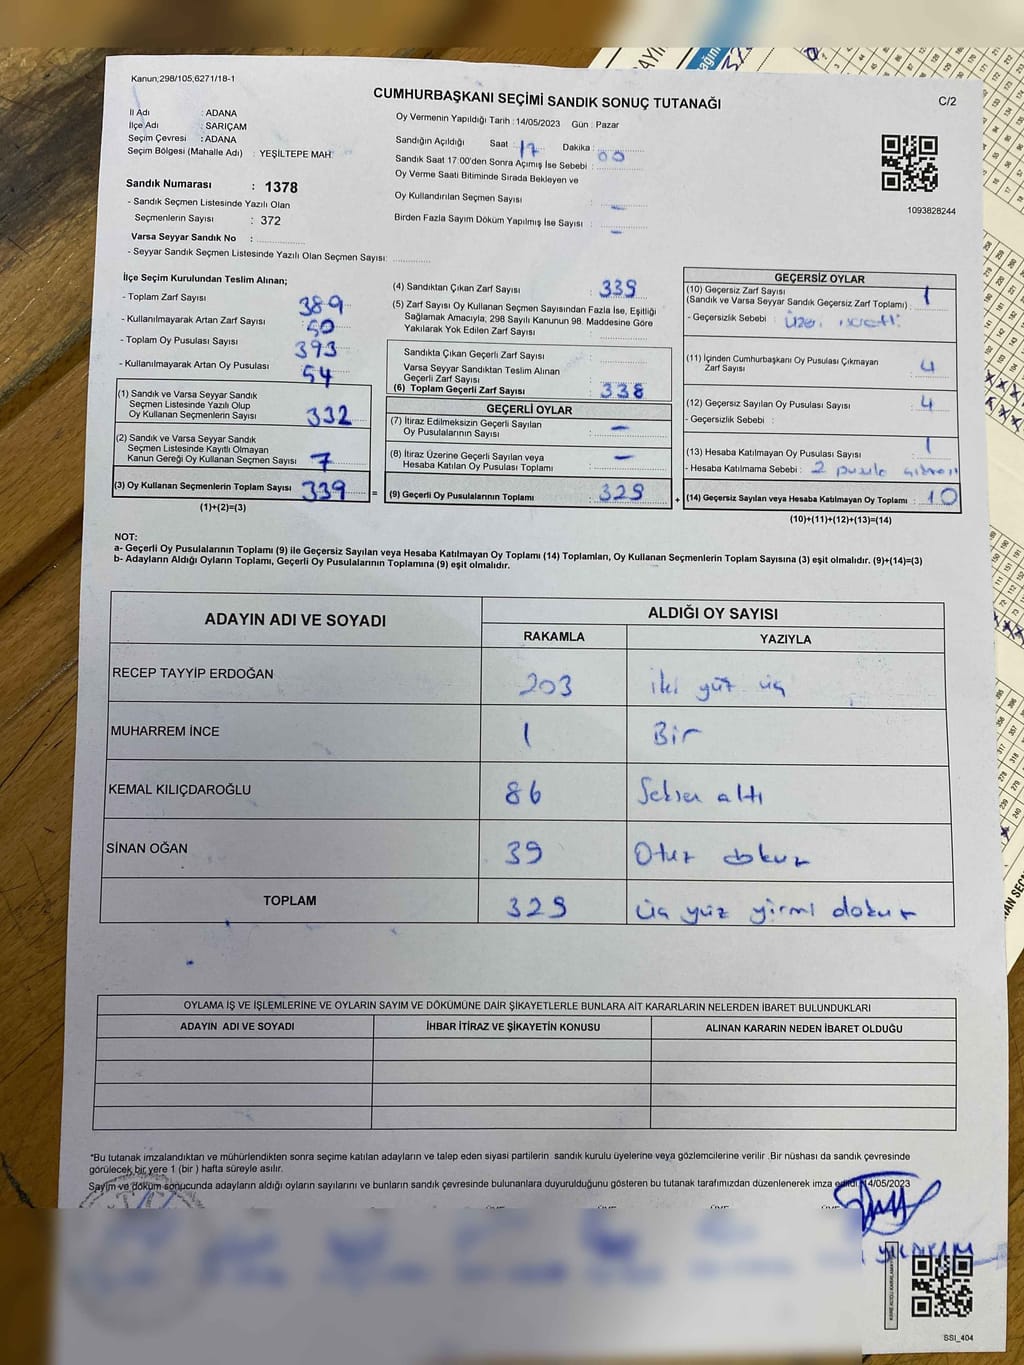 Kanun;298/105,6271/18-1
CUMHURBAŞKANI SEÇİMİ SANDIK SONUÇ TUTANAĞI
C/2
İl Adı : ADANA
İlçe Adı : SARIÇAM
Seçim Çevresi : ADANA
Seçim Bölgesi (Mahalle Adı) : YEŞİLTEPE MAH.
Sandık Numarası : 1378
- Sandık Seçmen Listesinde Yazılı Olan
Seçmenlerin Sayısı : 372
Varsa Seyyar Sandık No :
- Seyyar Sandık Seçmen Listesinde Yazılı Olan Seçmen Sayısı:
Oy Vermenin Yapıldığı Tarih : 14/05/2023 Gün : Pazar
Sandığın Açıldığı Saat : 17 Dakika : 00
Sandık Saat 17:00'den Sonra Açılmış İse Sebebi :
Oy Verme Saati Bitiminde Sırada Bekleyen ve
Oy Kullandırılan Seçmen Sayısı : -
Birden Fazla Sayım Döküm Yapılmış İse Sayısı : -
1093828244
İlçe Seçim Kurulundan Teslim Alınan;
- Toplam Zarf Sayısı 389
- Kullanılmayarak Artan Zarf Sayısı 50
- Toplam Oy Pusulası Sayısı 393
- Kullanılmayarak Artan Oy Pusulası 54
(1) Sandık ve Varsa Seyyar Sandık
Seçmen Listesinde Yazılı Olup
Oy Kullanan Seçmenlerin Sayısı 332
(2) Sandık ve Varsa Seyyar Sandık
Seçmen Listesinde Kayıtlı Olmayan
Kanun Gereği Oy Kullanan Seçmen Sayısı 7
(3) Oy Kullanan Seçmenlerin Toplam Sayısı 339 =
(1)+(2)=(3)
(4) Sandıktan Çıkan Zarf Sayısı : 339
(5) Zarf Sayısı Oy Kullanan Seçmen Sayısından Fazla İse, Eşitliği
Sağlamak Amacıyla, 298 Sayılı Kanunun 98. Maddesine Göre
Yakılarak Yok Edilen Zarf Sayısı :
Sandıkta Çıkan Geçerli Zarf Sayısı :
Varsa Seyyar Sandıktan Teslim Alınan
Geçerli Zarf Sayısı :
(6) Toplam Geçerli Zarf Sayısı : 338
GEÇERLİ OYLAR
(7) İtiraz Edilmeksizin Geçerli Sayılan
Oy Pusulalarının Sayısı : -
(8) İtiraz Üzerine Geçerli Sayılan veya
Hesaba Katılan Oy Pusulası Toplamı : -
(9) Geçerli Oy Pusulalarının Toplamı : 329 +
GEÇERSİZ OYLAR
(10) Geçersiz Zarf Sayısı
(Sandık ve Varsa Seyyar Sandık Geçersiz Zarf Toplamı) : 1
- Geçersizlik Sebebi :
(11) İçinden Cumhurbaşkanı Oy Pusulası Çıkmayan
Zarf Sayısı : 4
(12) Geçersiz Sayılan Oy Pusulası Sayısı : 4
- Geçersizlik Sebebi :
(13) Hesaba Katılmayan Oy Pusulası Sayısı : 1
- Hesaba Katılmama Sebebi : 2 pusula
(14) Geçersiz Sayılan veya Hesaba Katılmayan Oy Toplamı : 10
(10)+(11)+(12)+(13)=(14)
NOT:
a- Geçerli Oy Pusulalarının Toplamı (9) ile Geçersiz Sayılan veya Hesaba Katılmayan Oy Toplamı (14) Toplamları, Oy Kullanan Seçmenlerin Toplam Sayısına (3) eşit olmalıdır. (9)+(14)=(3)
b- Adayların Aldığı Oyların Toplamı, Geçerli Oy Pusulalarının Toplamına (9) eşit olmalıdır.
ADAYIN ADI VE SOYADI ALDIĞI OY SAYISI
RAKAMLA YAZIYLA
RECEP TAYYİP ERDOĞAN 203 iki yüz üç
MUHARREM İNCE 1 Bir
KEMAL KILIÇDAROĞLU 86 Seksen altı
SİNAN OĞAN 39 Otuz dokuz
TOPLAM 329 üç yüz yirmi dokuz
OYLAMA İŞ VE İŞLEMLERİNE VE OYLARIN SAYIM VE DÖKÜMÜNE DAİR ŞİKAYETLERLE BUNLARA AİT KARARLARIN NELERDEN İBARET BULUNDUKLARI
ADAYIN ADI VE SOYADI İHBAR İTİRAZ VE ŞİKAYETİN KONUSU ALINAN KARARIN NEDEN İBARET OLDUĞU
*Bu tutanak imzalandıktan ve mühürlendikten sonra seçime katılan adayların ve talep eden siyasi partilerin sandık kurulu üyelerine veya gözlemcilerine verilir .Bir nüshası da sandık çevresinde
görülecek bir yere 1 (bir ) hafta süreyle asılır.
Sayım ve döküm sonucunda adayların aldığı oyların sayılarını ve bunların sandık çevresinde bulunanlara duyurulduğunu gösteren bu tutanak tarafımızdan düzenlenerek imza edildi.14/05/2023
SSI_404